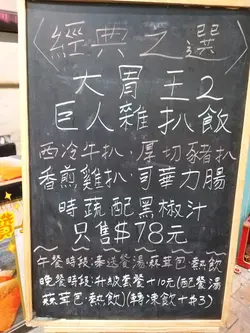 〈經典之選〉
大胃王2
巨人雜扒飯
西冷牛扒·厚切豬扒
香煎雞扒·司華力腸
時蔬配黑椒汁
只售$78元
午餐時段:奉送餐湯·蒜茸包·熱飲
晚餐時段:升級套餐+10元(配餐湯
蒜茸包·熱飲)(轉凍飲+$3)